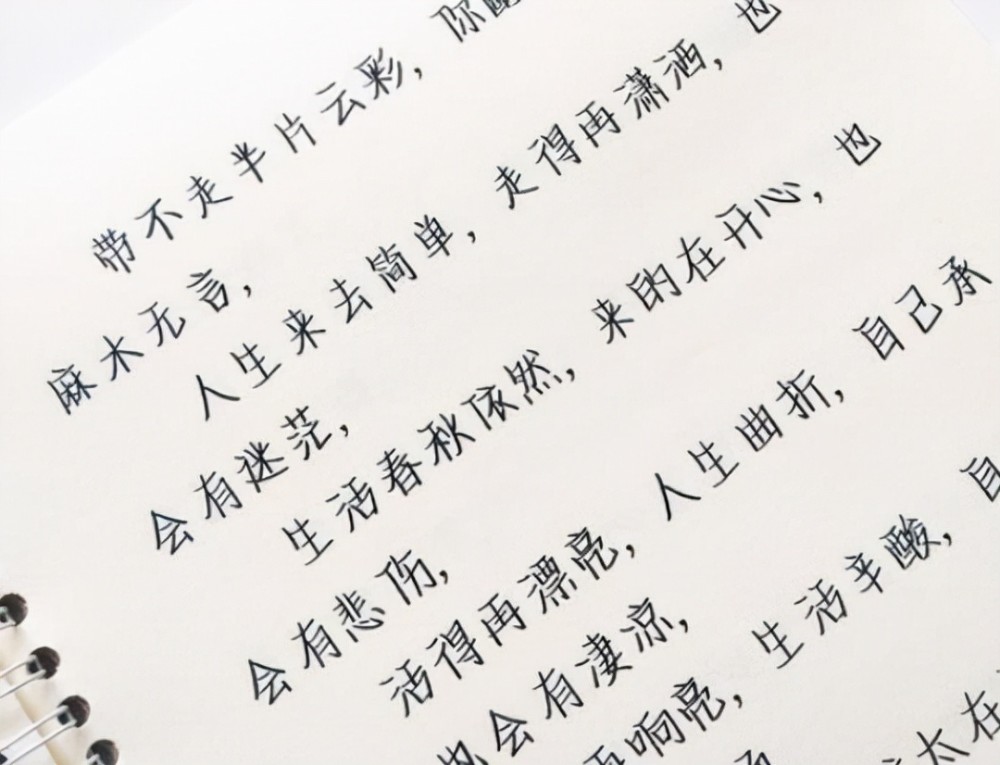 带不走半片云彩，你
麻木无言，
人生来去简单，走得再潇洒，也
会有迷茫，
生活春秋依然，来的在开心，也
会有悲伤，
活得再漂亮，人生曲折，自己承
也会有凄凉，
再响亮，生活辛酸，自
太在